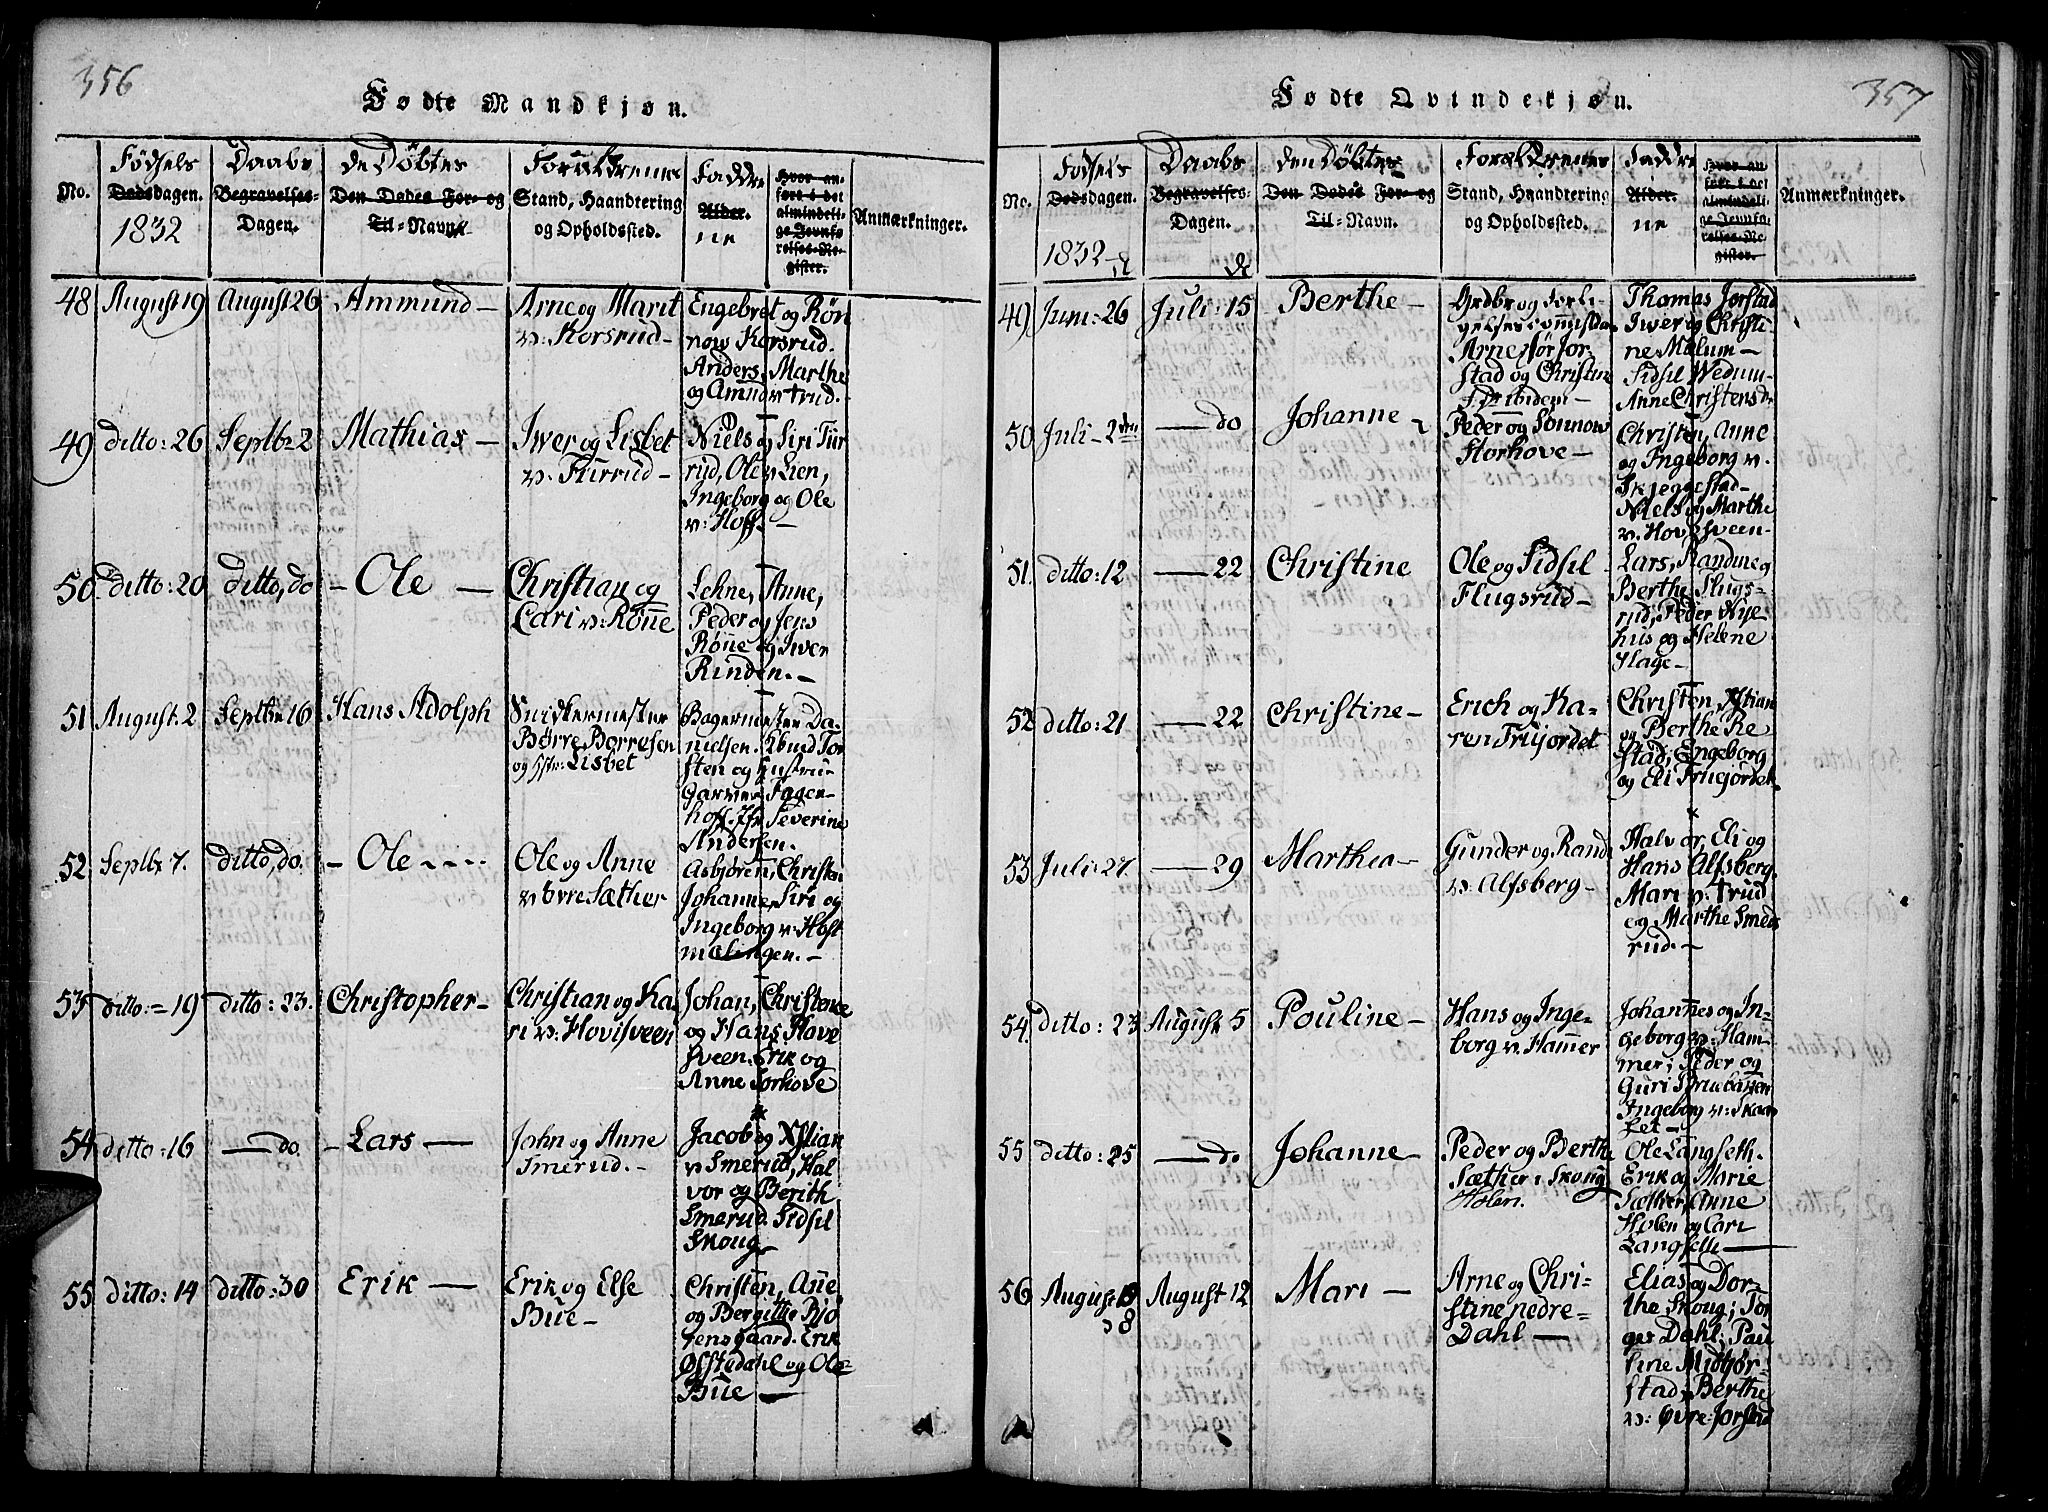 356
Fødte Mandkjøn.
No.
Fødsels
Dødsdagen.
1832
Daabs
Begravelses-
Dagen.
De Døbtes
Den Dødes For- og
Til-Navn
Forældrenes
Stand, Haandtering
og Opholdssted.
Faddre
Alder.
ne
Hvor an-
ført i det
almindeli-
ge Jevnfø-
relses-Re-
gister.
Anmærkninger.
48
August 19
August 26
Ammund –
Arne og Marit
v: Korsrud –
Engebret og Røn
now Korsrud.
Anders, Marthe
og Amund v Trud. –
49
ditto: 26
Septbr 2
Mathias –
Iwer og Lisbet
v: Furrud –
Niels og Siri Fur
rud, Ole v Lien,
Ingeborg og Ole
v: Hoff. –
50.
ditto: 20
ditto, do
– Ole –
Christian og
Cari v: Rønne
Lehne, Anne,
Peder og Jens
Rønne og Iwer
Rinden. –
51
August 2
Septbr 16
Hans Adolph
Snidkermester
Børre Borresen
og Hstr: Lisbet
Bagermester Da-
nielsen. Kbmd Tor
sten og Hustru
Garver Fagen-
hoff. Jfr Severine
Andersen.
52
Septbr 7.
ditto, do.
– Ole - - - -
Ole og Anne
v Øvre Sæther
Asbjøren, Christen
Johanne, Siri og
Ingeborg v: Høst
mælingen. –
53
ditto: – 19
ditto: 23.
Christopher –
Christian og Ka
ri v: Hovisveen
Johan, Christence
og Hans Hove
sveen. Erik og
Anne Sorhove
54
ditto: 16
— do.
– Lars —
John og Anne
Smerud. –
Jacob og Xstian
v Smerud, Hal
vor og Berith
Smerud. Sidsil
Skoug –
55
ditto: 14
ditto: 30
Erik —
Erik og Else
Bue –
Christen, Ane,
og Bergitte Bjø
gensgaard. Erik
Øfstedahl og Ole
Bue —
357
Fødte Qvindekjøn.
No.
Fødsels
Dødsdagen.
1832
Daabs
Begravelses-
Dagen.
Den Døbtes
Den Dødes For- og
Til-Navn.
Forældrenes
Stand, Haandtering
og Opholdssted.
Faddre
Alder.
ne
Hvor an-
ført i det
almindeli-
ge Jevnfø-
relses-Re-
gister.
Anmærkninger.
49
Juni: 26
Juli: 15
Berthe –
Grdbr og Forli-
gelsescommissær
Arne Sør Jor
stad og Christine
ibidem –
Thomas Jorstad
Iwer og Christi-
ne Mælum –
Sidsil Wedum –
Anne Christensdr
50
Juli – 2den
— do
Johanne –
Peder og Sonnow
Storhove –
Christen, Anne
og Ingeborg v.
Skjeggestad –
Niels og Marthe
v. Hovesveen –
51.
ditto: 12
— 22
Christine
Ole og Sidsil
Flugsrud –
Lars, Randine og
Berthe Flugs-
rud, Peder Nye-
hus og Helene
Hage –
52
ditto: 21
— 22
Christine –
Erich og Ka-
ren Trujordet
Christen, Xstian
og Berthe Re
stad, Engeborg
og Eli Truejordet
53
Juli: 27.
— 29
Marthea –
Gunder og Randi
v. Alfsberg –
Halvor, Eli og
Hans Alfsberg.
Mari v. Trud
og Marthe Smeds
rud. –
54.
ditto: 23
August 5
Pouline –
Hans og Inge-
borg v. Hammer
Johannes og In-
geborg v: Ham-
mer; Peder og
Guri Struebakken
Ingeborg v: Skaar
set –
55
ditto: 25
— do
Johanne –
Peder og Berthe
Sæther i Skoug
Holen.
Ole Langseth.
Erik og Marie
Sæther, Anne
Holen og Cari
Langseth —
56
August
8
August 12
Mari –
Arne og Chri-
stine nedre-
Dahl —
Elias og Dor-
the Skoug; Tor
ger Dahl; Pau
line Midtjør-
stad, Berthe
v: Øvre Jorstad